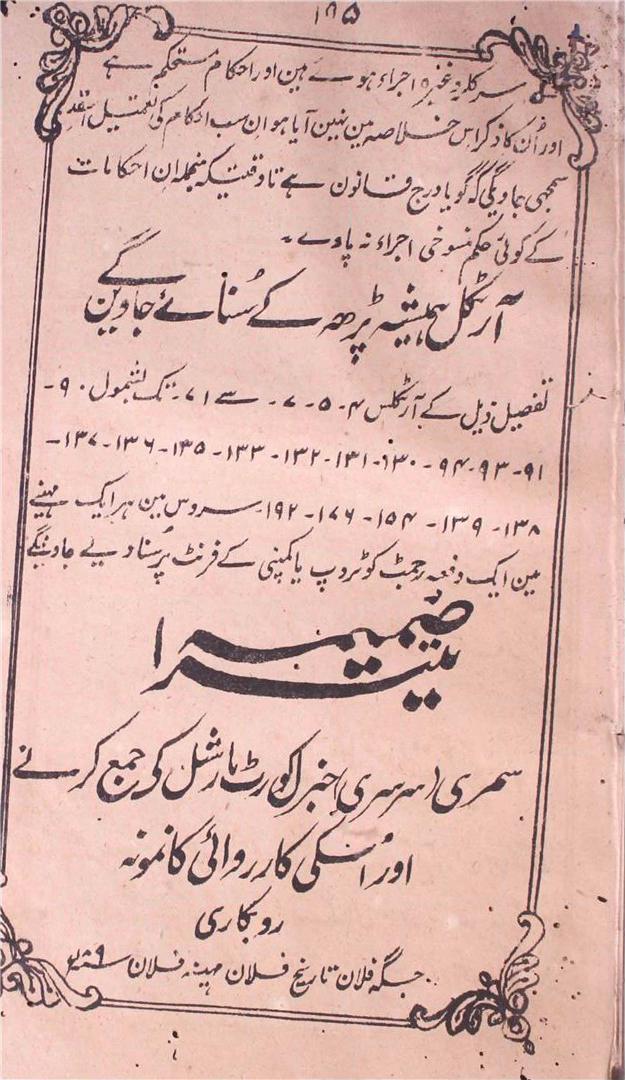 ۱۹۵
سرکلر وغیرہ اجراء ہوے ہین اور احکام مستحکم ہے
اور اُن کا ذکر اس خلاصہ مین نہین آیا ہو ان سب احکام کی تعمیل اسقدر
سمجھی جاویگی کہ گویا درج قانون ہے تا وقتیکہ منجملہ ان احکامات
کے کوئی حکم منسوخی اجراء نہ پاوے۔
آرٹکل ہمیشہ پڑھ کے سُنائے جاوین گے
تفصیل ذیل کے آرٹکلس ۴۔ ۵۔ ۷۔ سے ۷۱۔ تک بشمول ۹۰۔
۹۱۔ ۹۳۔ ۹۴۔ ۱۳۰۔ ۱۳۱۔ ۱۳۲۔ ۱۳۳۔ ۱۳۵۔ ۱۳۶۔ ۱۳۷۔
۱۳۸۔ ۱۳۹۔ ۱۵۴۔ ۱۷۶۔ ۱۹۲۔ سروس مین ہر ایک مہینے
مین ایک دفعہ رجمٹ کو ٹروپ یا کمپنی کے فرنٹ پر سُنا دیے جاوینگے
ضمیمہ
نمبر ۱
سمری (سرسری) جنرل کورٹ مارشل کی جمع کرنے
اور اُسکی کارروائی کا نمونہ
روبکاری
جگہ فلان تاریخ فلان مہینہ فلان